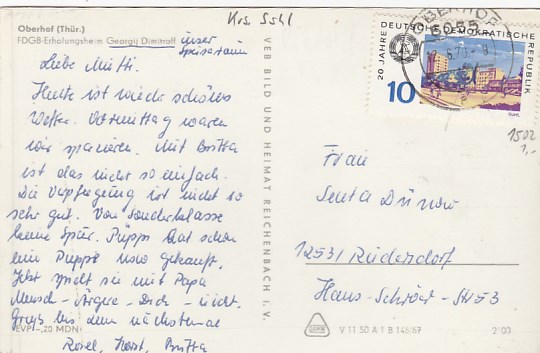 Krs. Sshl
Oberhof (Thür.)
FDGB-Erholungsheim Georgij Dimitroff
unser
Speiseraum
Liebe Mutti.
Heute ist wieder schönes
Wetter. Vormittag waren
wir spazieren. Mit Britta
ist das nicht so einfach.
Die Verpflegung ist nicht so
sehr gut. Von Sonderklasse
keine Spur. Püppi hat schon
ein Puppe neu gekauft.
Jetzt spielt sie mit Papa
Mensch-Ärgere-Dich-nicht.
Gruß bis zum nächstenmal
Rosel, Horst, Britta
EVP -,20 MDN
VEB BILD UND HEIMAT REICHENBACH I. V.
20 JAHRE DEUTSCHE DEMOKRATISCHE REPUBLIK
10
SUHL
OBERHOF
6055
1502
1,-
Frau
Senta Dünow
12531 Rüdersdorf
Hans-Schröer-Str. 53
V 11 50 A 1 B 146/67